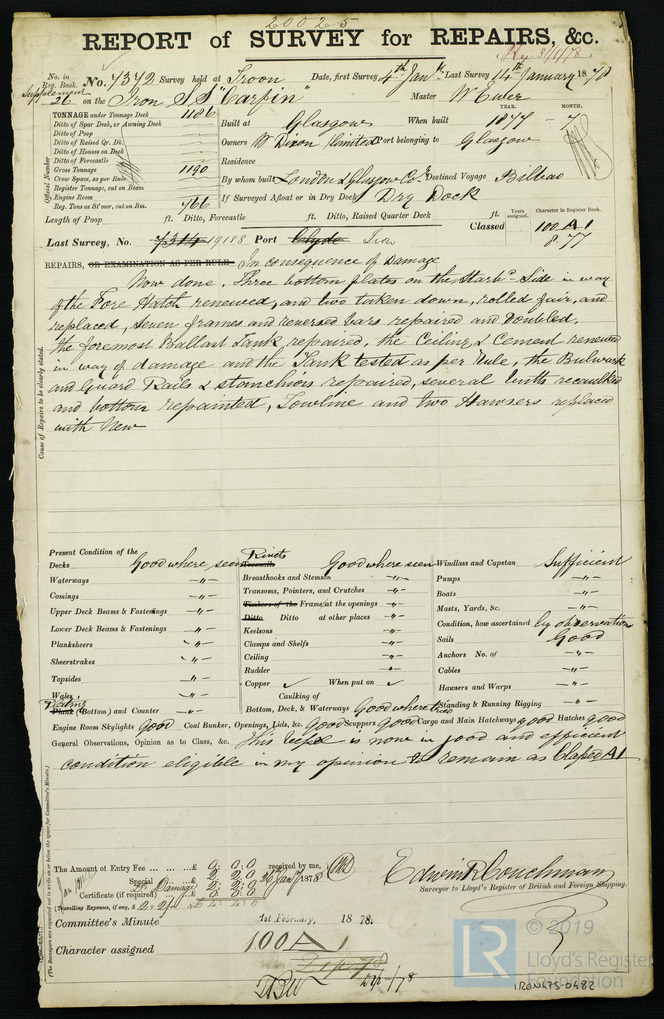 20025
REPORT of SURVEY for REPAIRS, &c.
No. in Reg. Book. No. 7372 Survey held at Troon Date, first Survey 4th Jany Last Survey 14th January 1878
Supplement 26 on the Iron S S "Carpin" Master W Euler
TONNAGE under Tonnage Deck 1186
Ditto of Spar Deck, or Awning Deck
Ditto of Poop
Ditto of Raised Qr. Dk.
Ditto of Houses on Deck
Ditto of Forecastle
Gross Tonnage 1190
Crew Space, as per Rule
Register Tonnage, cut on Beam
Engine Room
Reg. Tons as St'mer, cut on Bm. 766
Official Number
YEAR. MONTH.
Built at Glasgow When built 1877 - 7
Owners W Dixon (limited) Port belonging to Glasgow
Residence
By whom built London & Glasgow Co. Destined Voyage Bilbao
If Surveyed Afloat or in Dry Dock Dry Dock
Length of Poop ft. Ditto, Forecastle ft. Ditto, Raised Quarter Deck ft.
Years assigned. Character in Register Book.
Classed 100 A 1
8 77
Last Survey, No. 7314 19188 Port Clyde Troon
REPAIRS, OR EXAMINATION AS PER RULE. In consequence of Damage
Now done. Three bottom plates on the Starbd Side in way
of the Fore Hatch renewed, and two taken down, rolled fair, and
replaced, Seven frames and reversed bars repaired and doubled.
the foremost Ballast Tank repaired, the Ceiling & Cement renewed
in way of damage and the Tank tested as per Rule, the Bulwark
and Guard Rails & stanchions repaired, several butts recaulked
and bottom repainted, Towline and two Hawsers replaced
with New
Cause of Repairs to be clearly stated.
Present Condition of the
Decks Good where seen
Waterways -"-
Comings -"-
Upper Deck Beams & Fastenings -"-
Lower Deck Beams & Fastenings -"-
Planksheers -"-
Sheerstrakes -"-
Topsides -"-
Wales -"-
Plating Plank (Bottom) and Counter -"-
Rivets Treenails Good where seen
Breasthooks and Stemson -"-
Transoms, Pointers, and Crutches -"-
Timbers of the Frame at the openings -"-
Ditto Ditto at other places -"-
Keelsons -"-
Clamps and Shelfs -"-
Ceiling -"-
Rudder -"-
Copper ✓ When put on ✓
Caulking of
Bottom, Deck, & Waterways Good where tried
Windlass and Capstan Sufficient
Pumps -"-
Boats -"-
Masts, Yards, &c. -"-
Condition, how ascertained by observation
Sails Good
Anchors No. of -"-
Cables -"-
Hawsers and Warps -"-
Standing & Running Rigging -"-
Engine Room Skylights Good Coal Bunker, Openings, Lids, &c. Good Scuppers Good Cargo and Main Hatchways good Hatches good
General Observations, Opinion as to Class, &c. This Vessel is now in good and efficient
condition eligible in my opinion to remain as Classed A1
(The Surveyors are requested not to write on or below the space for Committee's Minute.)
The Amount of Entry Fee ... ... ...£ 0 : 0 : 0 received by me,
Special Damage £ 2 : 2 : 0 26 Jany 1878
Certificate (if required)
(Travelling Expenses, if any, £ 2 : 2/-)
Edwin R Couchman
Surveyor to Lloyd's Register of British and Foreign Shipping.
Committee's Minute 1st February, 1878.
Character assigned 100 A 1
© 2019
LR Lloyd's Register
Foundation
IRON475-0482